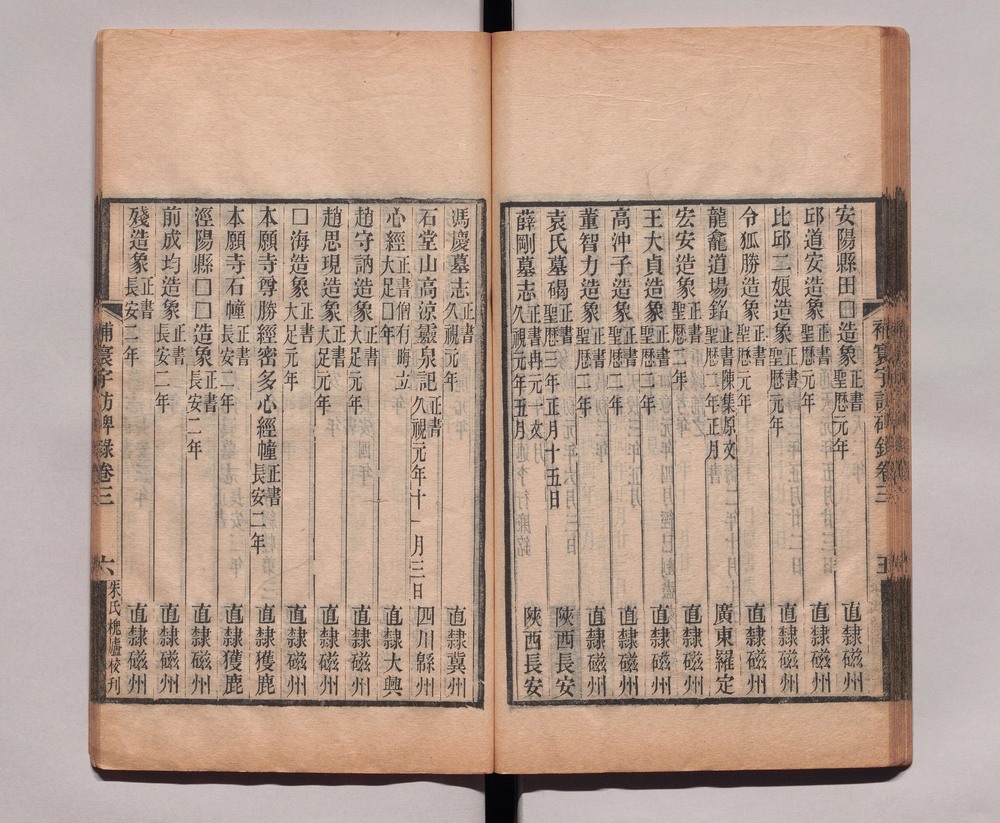 安陽縣田□造象正書聖厯元年 直隸磁州
邱道安造象正書聖厯元年 直隸磁州
比邱二娘造象正書聖厯元年 直隸磁州
令狐勝造象正書聖厯元年 直隸磁州
龍龕道場銘正書陳集原文聖厯二年正月 廣東羅定
宏安造象正書聖厯二年 直隸磁州
王大貞造象正書聖厯二年 直隸磁州
高沖子造象正書聖厯二年 直隸磁州
董智力造象正書聖厯二年 直隸磁州
袁氏墓碣正書聖厯三年正月十五日 陝西長安
薛剛墓志正書久視元年五月 陝西長安
補寰宇訪碑錄卷三 五
馮慶墓志正書久視元年 直隸冀州
石堂山高涼靈泉記正書久視元年十一月三日 四川緜州
心經正書僧有晦立大足□年 直隸大興
趙守訥造象正書大足元年 直隸磁州
趙思現造象正書大足元年 直隸磁州
□海造象正書大足元年 直隸磁州
本願寺尊勝經密多心經幢正書長安二年 直隸獲鹿
本願寺石幢正書長安二年 直隸獲鹿
涇陽縣□□造象正書長安二年 直隸磁州
前成均造象正書長安二年 直隸磁州
殘造象正書長安二年 直隸磁州
補寰宇訪碑錄卷三 六 朱氏槐廬校刊